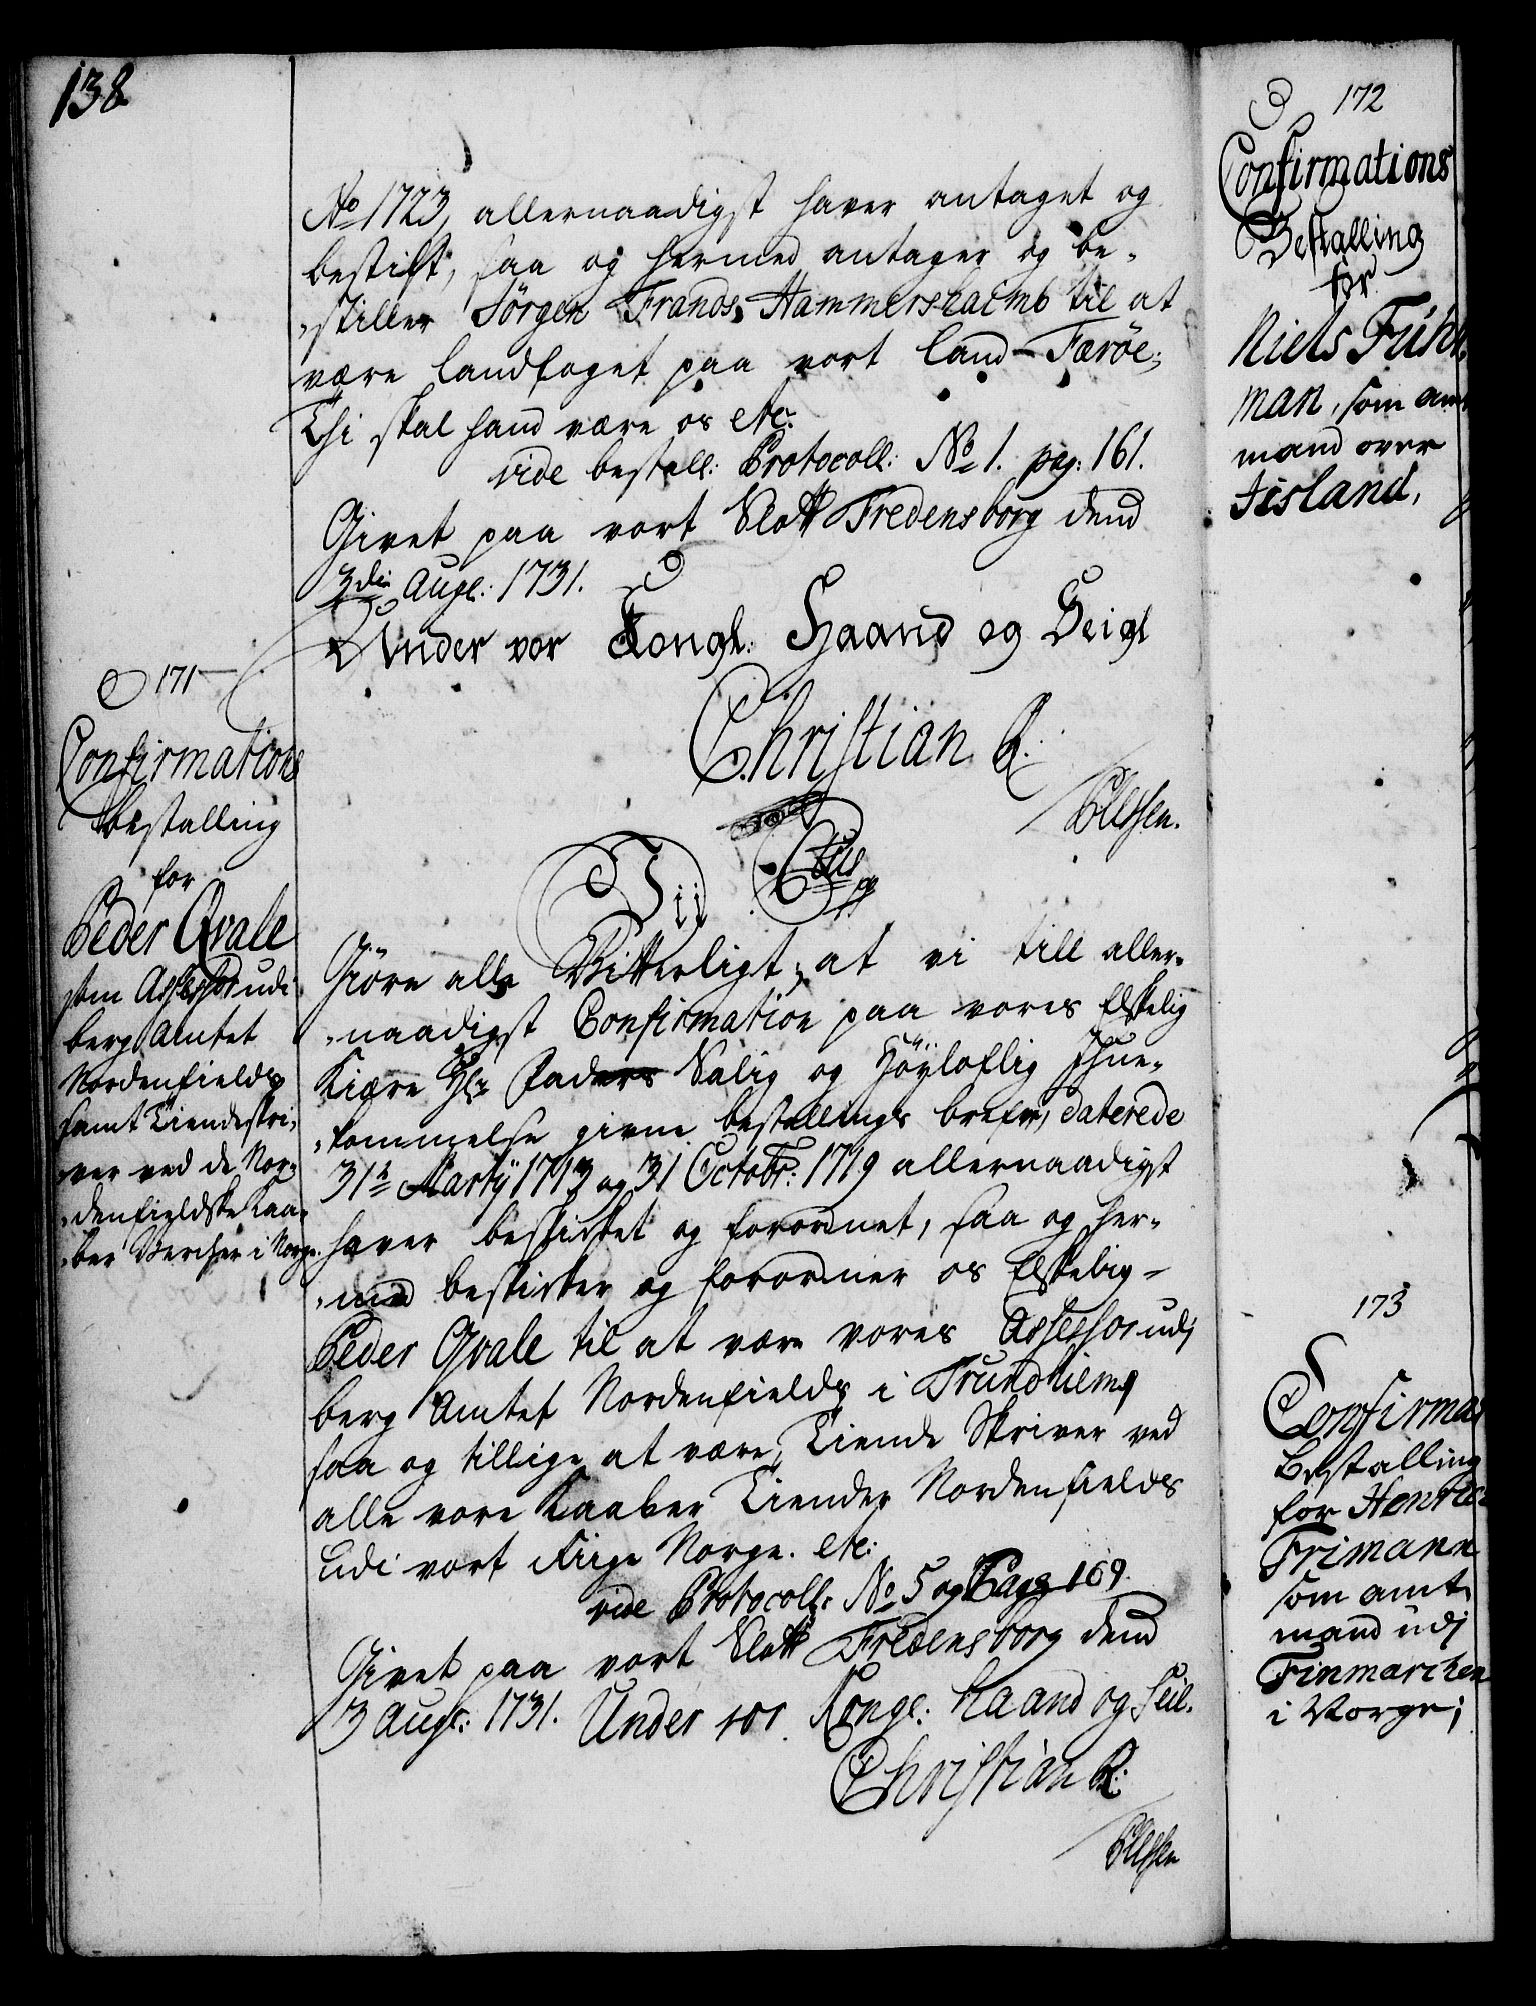 138
No 1723, allernaadigst haver antaget og
bestilt, saa og hermed antager og be-
-stiller Jörgen Frands Hammershaimb til at
være landfoget paa vort land Færöe;
Thi skal hand være os etc:
vide bestall: Protocoll: No 1. pag: 161.
Givet paa vort Slott Fredensborg dend
3die Augl: 1731.
Under vor Kongl: Haand og Seigl
Christian R.
171
Confirmations
bestalling
for
Peder Qvale
som Assessor udi
berg Amtet
Nordenfields
samt Tiendeskri-
ver ved de Nor-
-denfieldske Kaa-
-ber Vercher i Norge.
Vij Ctus
Giöre alle Vitterligt, at vi till aller-
-naadigst Confirmation paa vores Elskelig
Kiære Hr Faders Salig og Höyloflig Ihue-
-kommelse givne bestallings brefve, daterede
31te Martij 1713 og 31 Octobr: 1719 allernaadigst
haver beskicket og forordnet, saa og her-
-med beskicker og forordner os Elskelig
Peder Qvale til at være vores Assessor udj
berg Amtet Nordenfields i Trundhiem
saa og tillige at være Tiende Skriver ved
alle vore Kaaber Tiender Nordenfields
udi vort Riige Norge. etc:
vide Protocoll: No 5 og Pag 169.
Givet paa vort Slott Fredensborg dend
3 Augl: 1731. Under vor Kongl: Haand og Seil.
Christian R:
172
Confirmations
Bestalling
for
Niels Fuhr
man, som amt
mand over
Iisland,
173
Confirma
Bestalling
for Henrich
Frimann
som amt
mand udj
Finmarchen
i Norge;